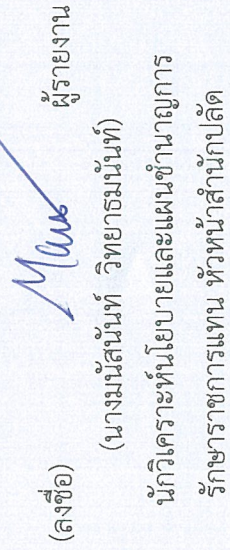 (ลงชื่อ) ผู้รายงาน
(นางมนัสนันท์ วิทยาธมนันท์)
นักวิเคราะห์นโยบายและแผนชำนาญการ
รักษาราชการแทน หัวหน้าสำนักปลัด